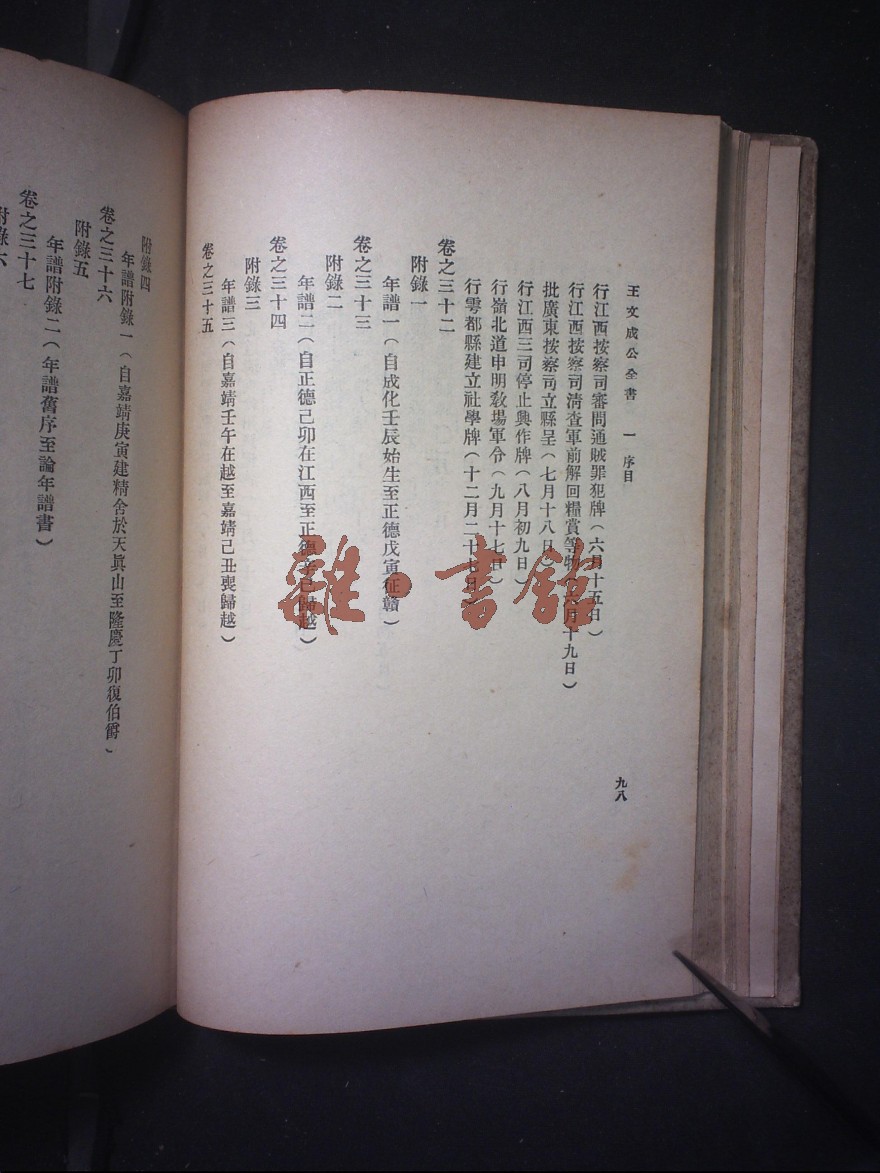 王文成公全書　一　序目
行江西按察司審問通賊罪犯牌（六月十五日）
行江西按察司清查軍前解回糧賞等物（六月十九日）
批廣東按察司立縣呈（七月十八日）
行江西三司停止興作牌（八月初九日）
行嶺北道申明敎場軍令（九月十七日）
行雩都縣建立社學牌（十二月二十七日）
卷之三十二
附錄一
年譜一（自成化壬辰始生至正德戊寅征贛）
卷之三十三
附錄二
年譜二（自正德己卯在江西至正德辛巳歸越）
卷之三十四
附錄三
年譜三（自嘉靖壬午在越至嘉靖己丑喪歸越）
卷之三十五
九八
附錄四
年譜附錄一（自嘉靖庚寅建精舍於天眞山至隆慶丁卯復伯爵）
卷之三十六
附錄五
年譜附錄二（年譜舊序至論年譜書）
卷之三十七
附錄六
雜·書館